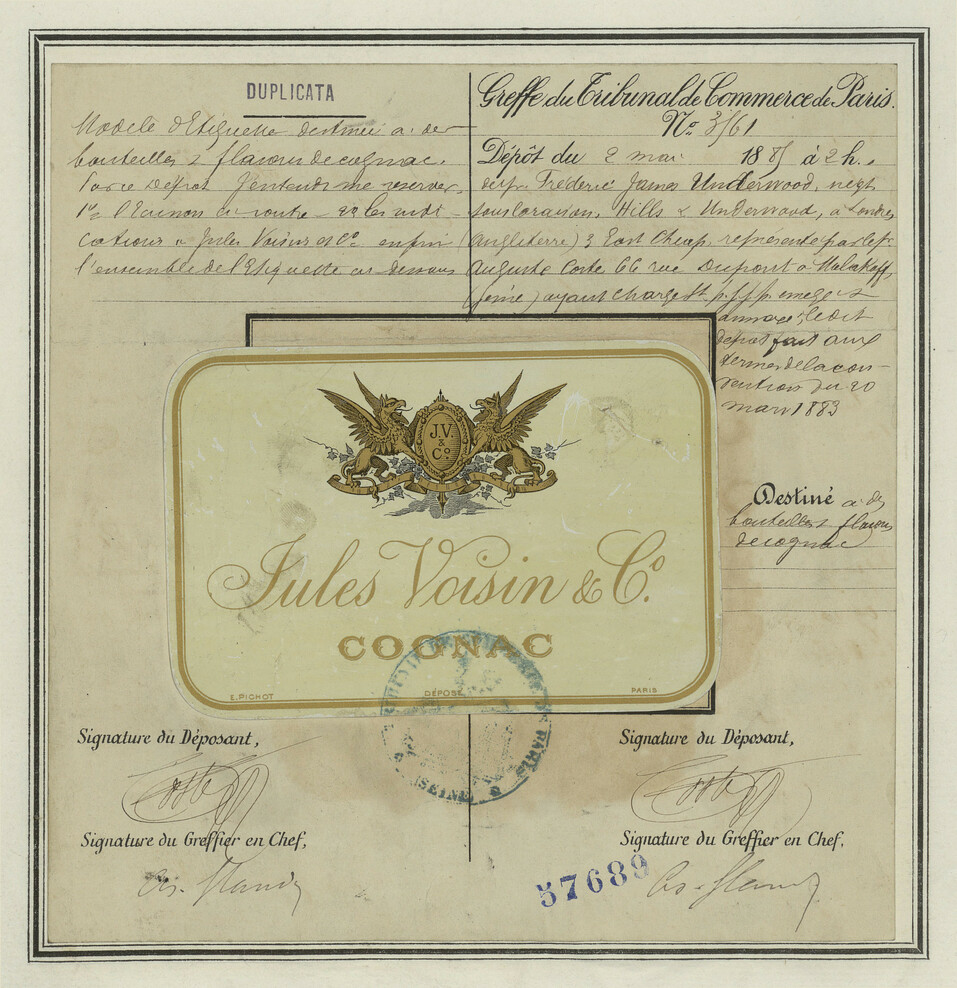 DUPLICATA
Modèle d'Etiquette destinée à des
bouteilles & flacons de cognac.
Par ce Dépôt j'entends me réserver,
1º l'Ecusson ci-contre - 2º les indi-
cations « Jules Voisin et Cº enfin
l'ensemble de l'Etiquette ci-dessous
Greffe du Tribunal de Commerce de Paris.
Nº 3161
Dépôt du 2 mai 1885 à 2 h.
Frédéric James Underwood, negt
sous la raison, Hills & Underwood, à Londres
(Angleterre) 3 East Cheap, représenté par le sr
Auguste Coste 66 rue Dupont à Malakoff,
(Seine) ayant charge
ledit
dépôt fait aux
termes de la con-
vention du 20
mars 1883
Destiné à des
bouteilles & flacons
de cognac
J.V.
&
Cº
Jules Voisin & Cº.
COGNAC
E. PICHOT
DÉPOSÉ
PARIS
PARIS
(SEINE)
Signature du Déposant,
Coste
Signature du Greffier en Chef,
Signature du Déposant,
Coste
Signature du Greffier en Chef,
57689